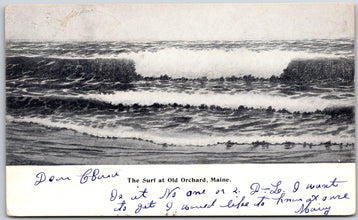 The Surf at Old Orchard, Maine.
Dear
Is it No one or 2 D-L, I want
to get I would like to know
Mary